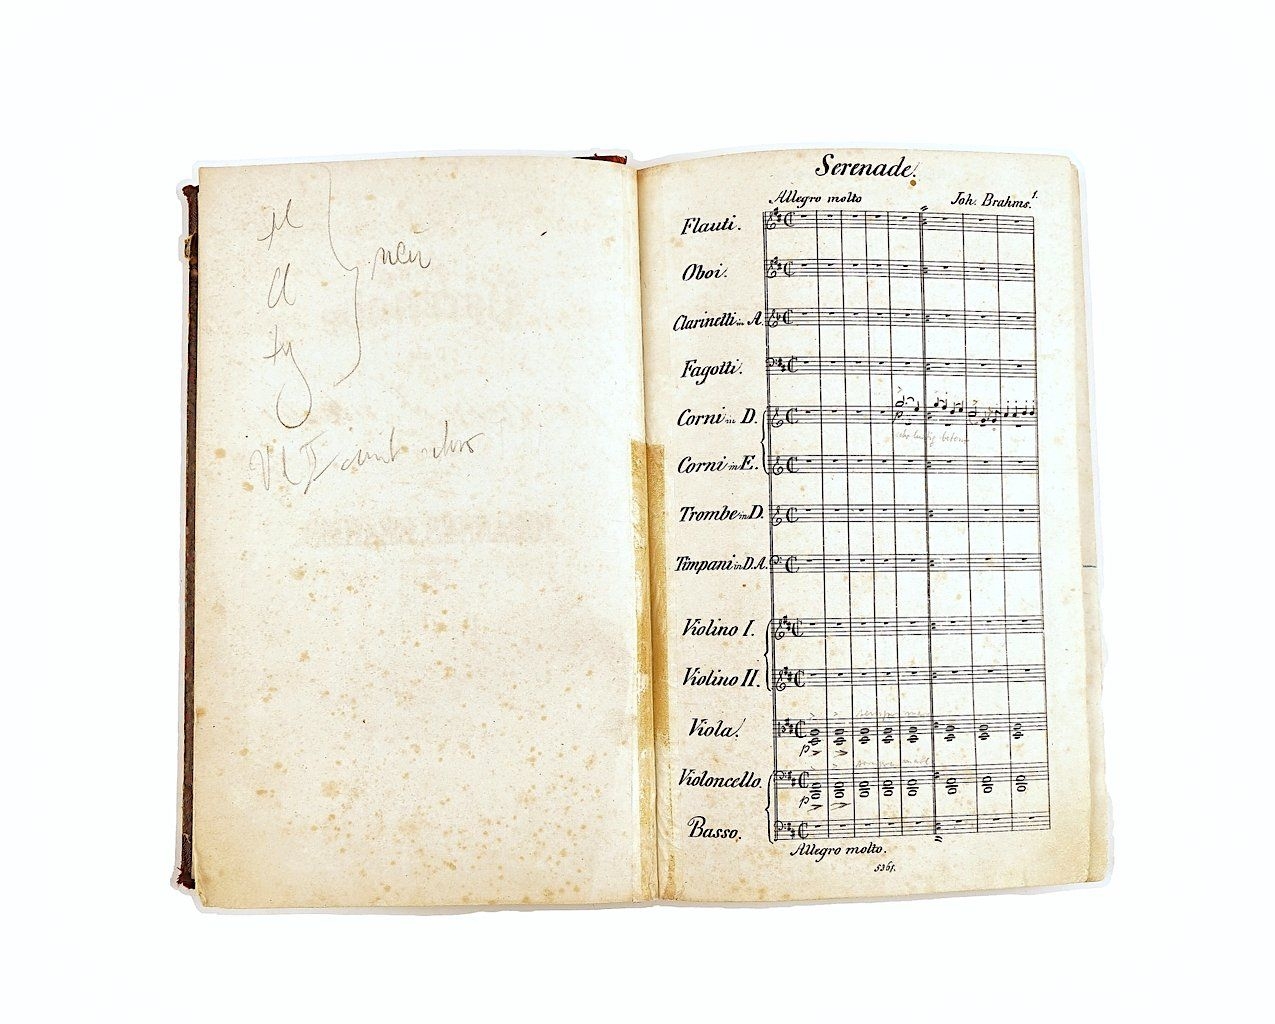 fl
cl
fg
neu
Serenade.
Allegro molto
Joh. Brahms.
1.
Flauti.
Oboi.
Clarinetti in A.
Fagotti.
Corni in D.
p
Corni in E.
Trombe in D.
Timpani in D.A.
Violino I.
Violino II.
Viola.
p
Violoncello.
p
Basso.
Allegro molto.
5361.